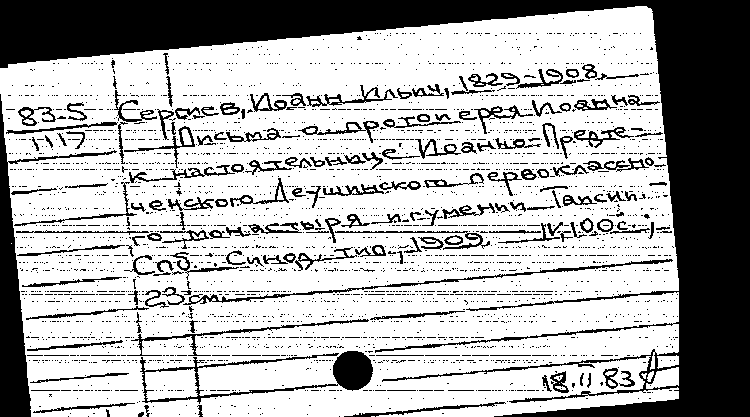 83-5 Сергиев, Иоанн Ильич, 1829-1908.
1117 Письма о. протоиерея Иоанна
к настоятельнице Иоанно-Предте-
ченского Леушинского первоклассно-
го монастыря игумении Таисии.
Спб.: Синод. тип., 1909. - IV, 100с.;
23см.
18.II.83